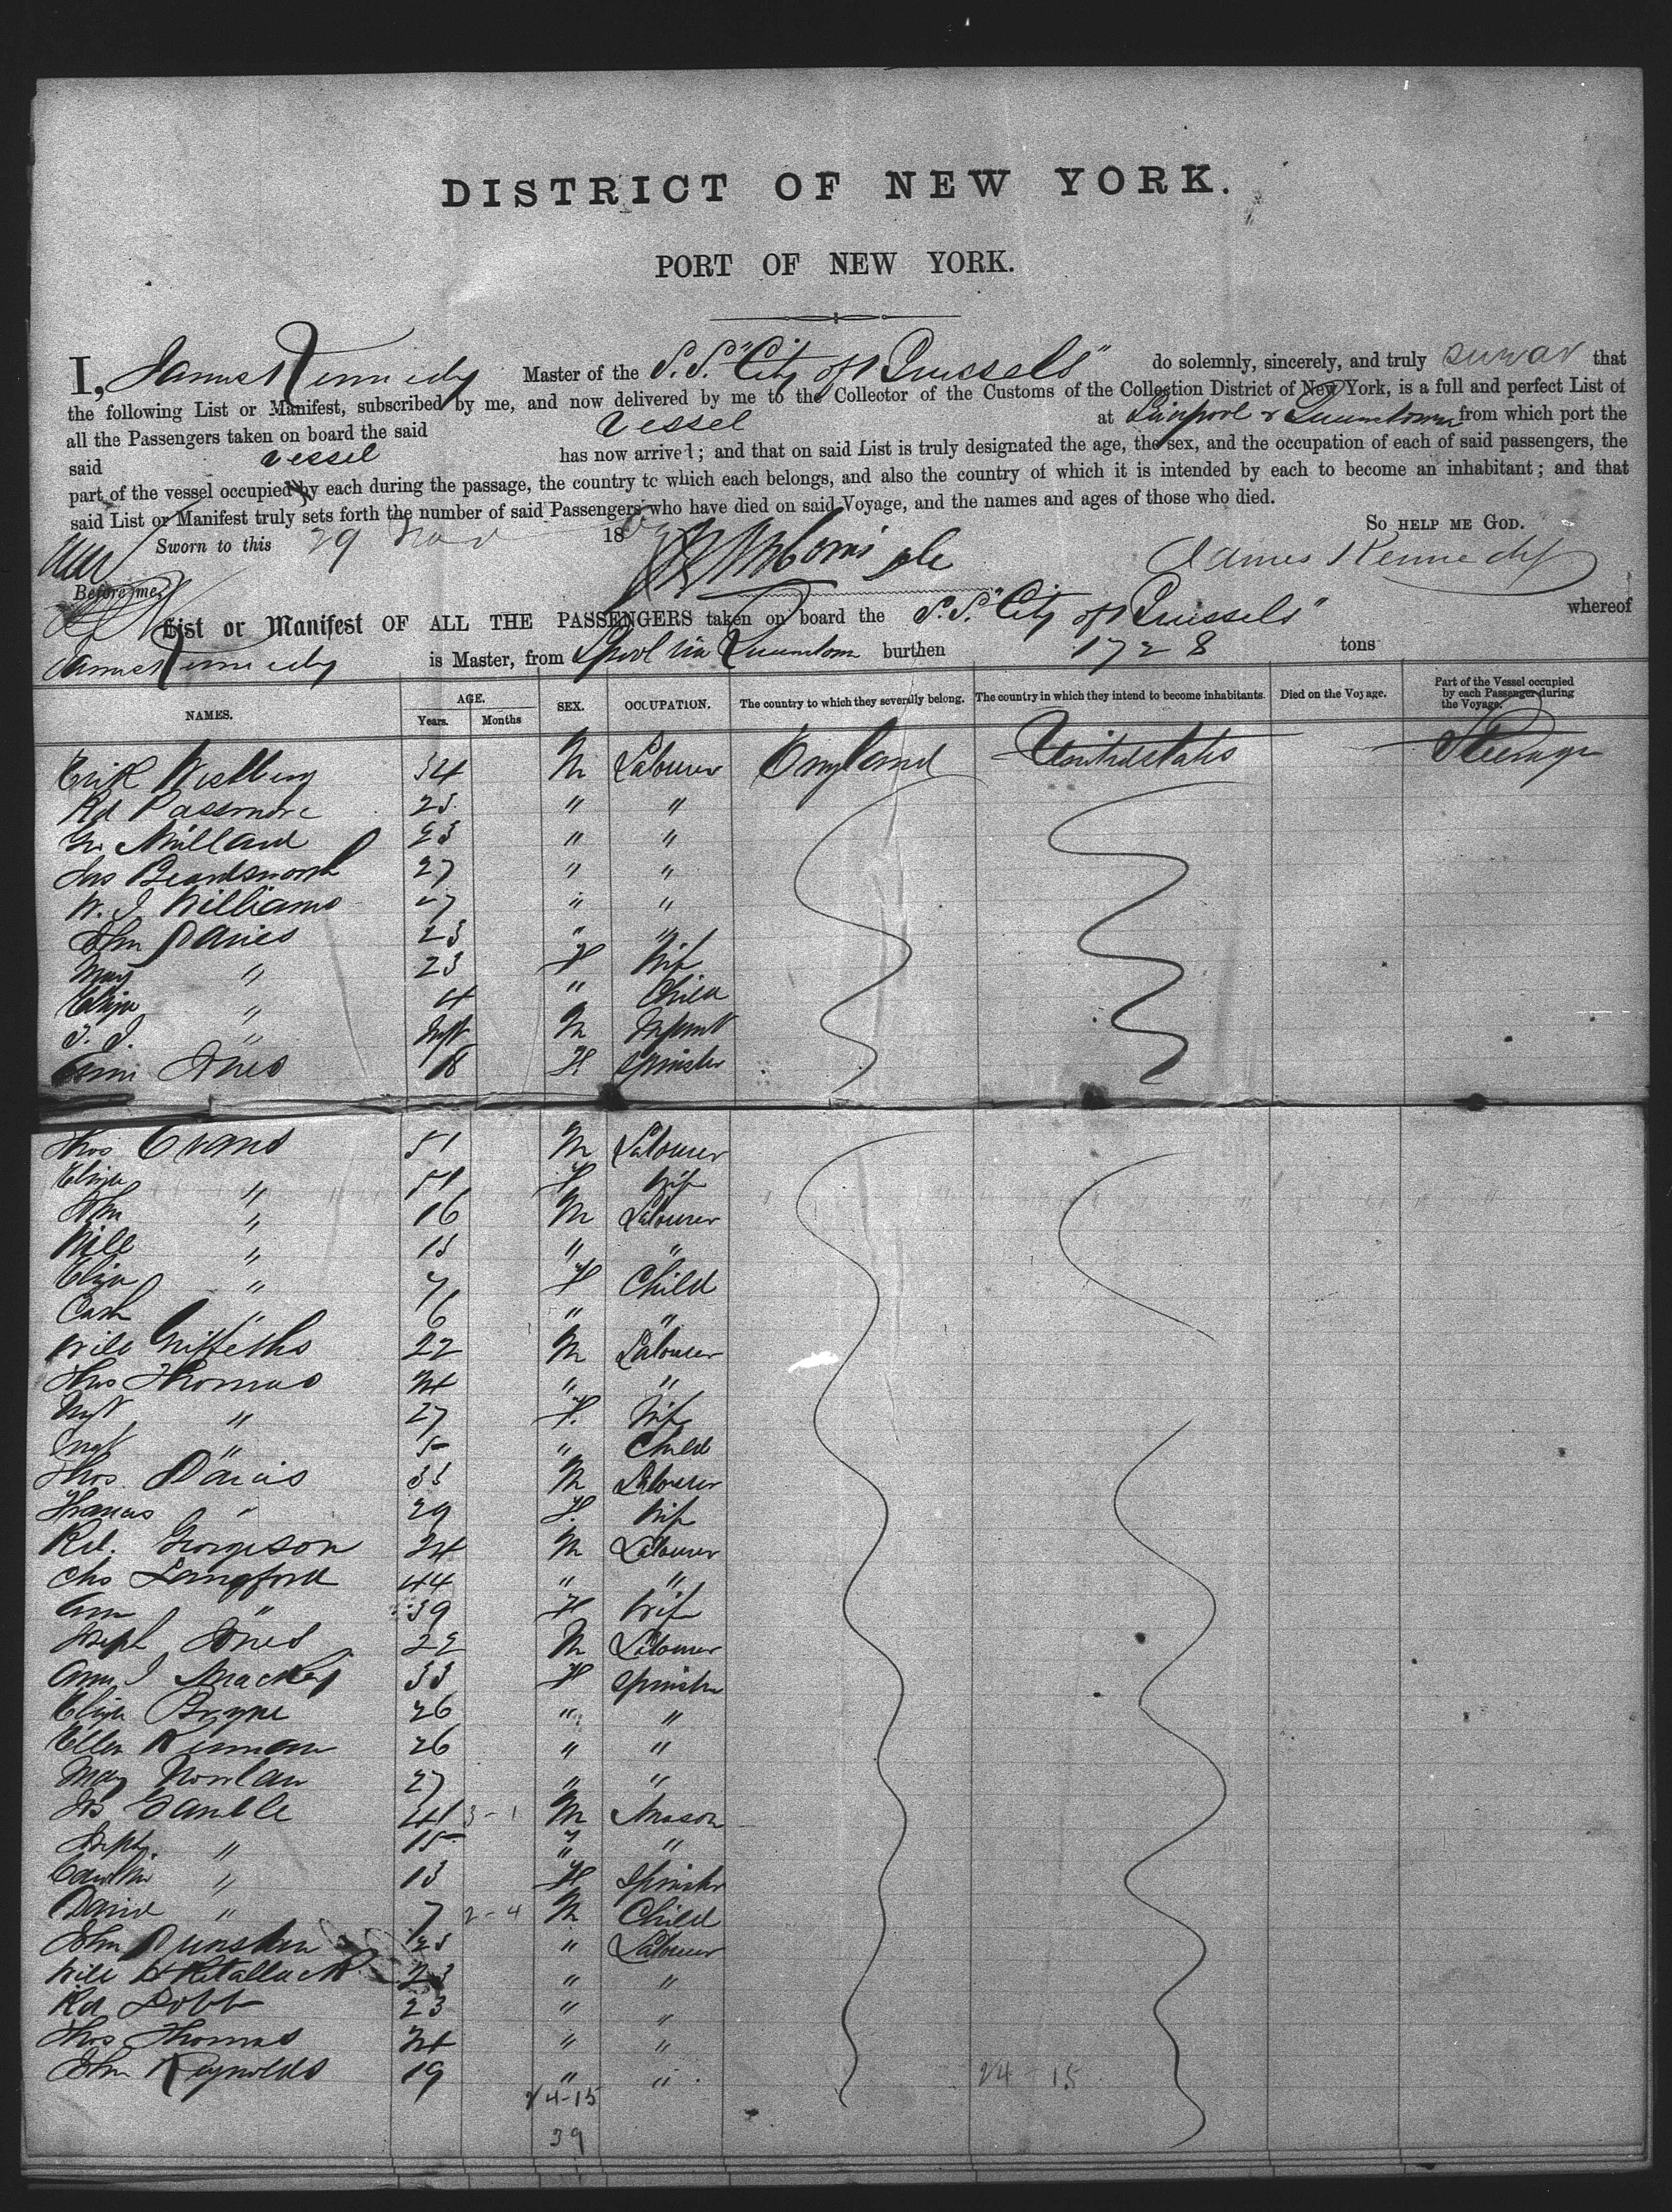 DISTRICT OF NEW YORK.
PORT OF NEW YORK.
I, James Kennedy Master of the S.S. "City of Brussels" do solemnly, sincerely, and truly swear that
the following List or Manifest, subscribed by me, and now delivered by me to the Collector of the Customs of the Collection District of New York, is a full and perfect List of
all the Passengers taken on board the said Vessel at Liverpool & Queenstown from which port the
said vessel has now arrived; and that on said List is truly designated the age, the sex, and the occupation of each of said passengers, the
part of the vessel occupied by each during the passage, the country to which each belongs, and also the country of which it is intended by each to become an inhabitant; and that
said List or Manifest truly sets forth the number of said Passengers who have died on said Voyage, and the names and ages of those who died.
SO HELP ME GOD.
Sworn to this 29 Nov 18
James Kennedy
Before me,
List or Manifest OF ALL THE PASSENGERS taken on board the S.S. "City of Brussels" whereof
James Kennedy is Master, from Lpool via Queenstown burthen 1728 tons
NAMES. AGE. Years. Months SEX. OCCUPATION. The country to which they severally belong. The country in which they intend to become inhabitants. Died on the Voyage. Part of the Vessel occupied by each Passenger during the Voyage.
Erik Westberg 34 M Labourer England United States Steerage
Rd Passmore 25 " "
Millard 23 " "
Jas Beardsworth 27 " "
W. J. Williams 27 " "
John Davies 23 " "
Mary " 23 F Wife
Eliza " 4 " Child
T. J. " Inft M Infant
Jones 18 F Spinster
Thos Evans 51 M Labourer
Eliza " 51 F Wife
John " 16 M Labourer
Will " 13 " "
Eliza " 7 F Child
Cath " 6 " "
Will Griffiths 22 M Labourer
Thos Thomas 24 " "
Mgt " 27 F. Wife
Mgt " 5 " Child
Thos. Davis 33 M Labourer
Frances " 29 F. Wife
Rd. Georgeson 24 M Labourer
Chs Langford 44 " "
Ann " 39 F Wife
Joseph Jones 22 M Labourer
Ann J Mackey 33 F Spinster
Eliza Bryne 26 " "
Ellen Kernan 26 " "
Mary Nowlan 27 " "
Jos Gamble 41 3-1 M Mason
Joseph " 15 " "
Caroline " 13 F Spinster
David " 7 2-4 M Child
John Dunstan 23 " Labourer
Will H Retallack 23 " "
Rd Dobb 23 " "
Thos Thomas 24 " "
John Reynolds 19 " "
24-15 24-15
39